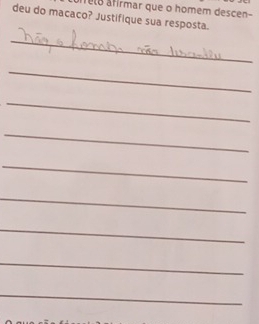 correto afirmar que o homem descen-
deu do macaco? Justifique sua resposta.
Não o homem não